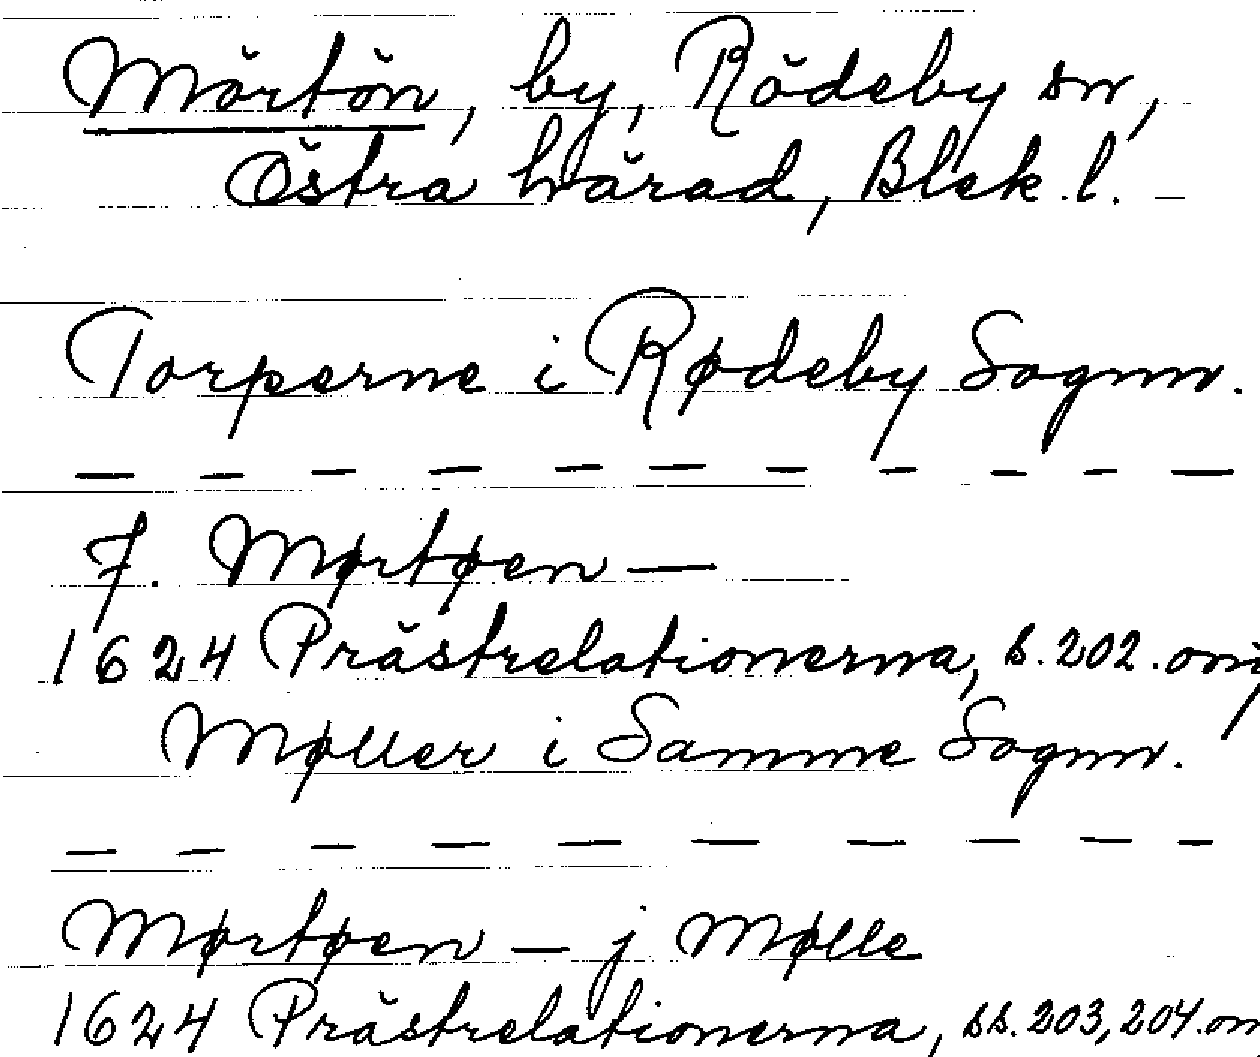 Mörtön, by, Rödeby sn,
Östra härad, Blek. l.
Torperne i Rødeby Sognn.
7. Mørtøen —
1624 Prästrelationerna, s. 202.
Møller i Samme Sognn.
Mørtøen — j Mølle
1624 Prästrelationerna, ss. 203, 204.